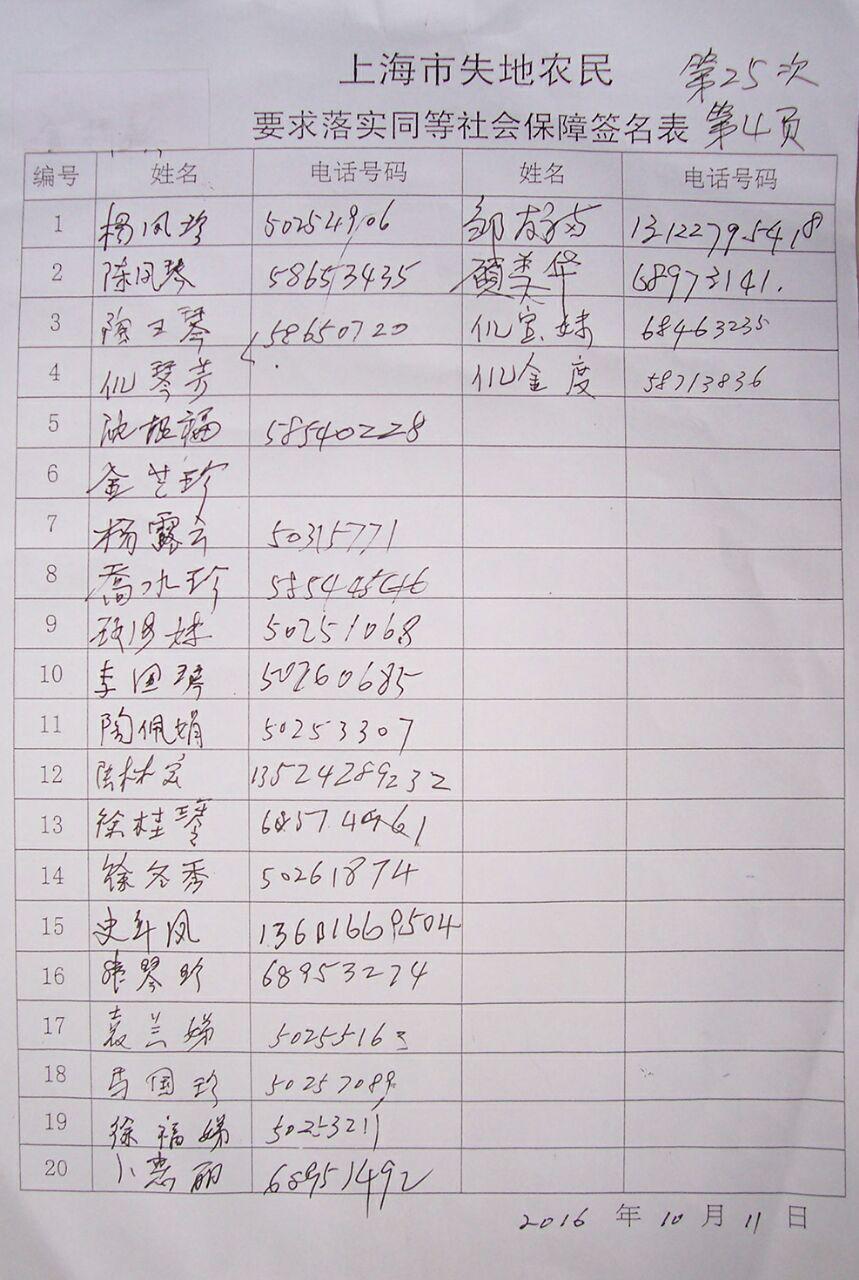 上海市失地农民 第25次
要求落实同等社会保障签名表 第4页
编号 姓名 电话号码 姓名 电话号码
1 杨凤珍 50254906 邹 13122795418
2 陈凤琴 58653435 顾美华 68973141.
3 陶文琴 58650720 仉宝妹 68463235
4 仉琴芳 仉金度 58713836
5 沈根福 58540228
6 金芝珍
7 杨露云 50315771
8 乔水珍
9 妹 50251068
10 李国琴 50260685
11 陶佩娟 50253307
12 陆林宝 13524289232
13 徐桂琴
14 徐冬秀 50261874
15 史年凤
16 张琴珍 68953274
17 袁兰娣 50255163
18 马国珍 50257089
19 徐福娣 50253211
20 卜惠丽 68951492
2016 年 10 月 11 日